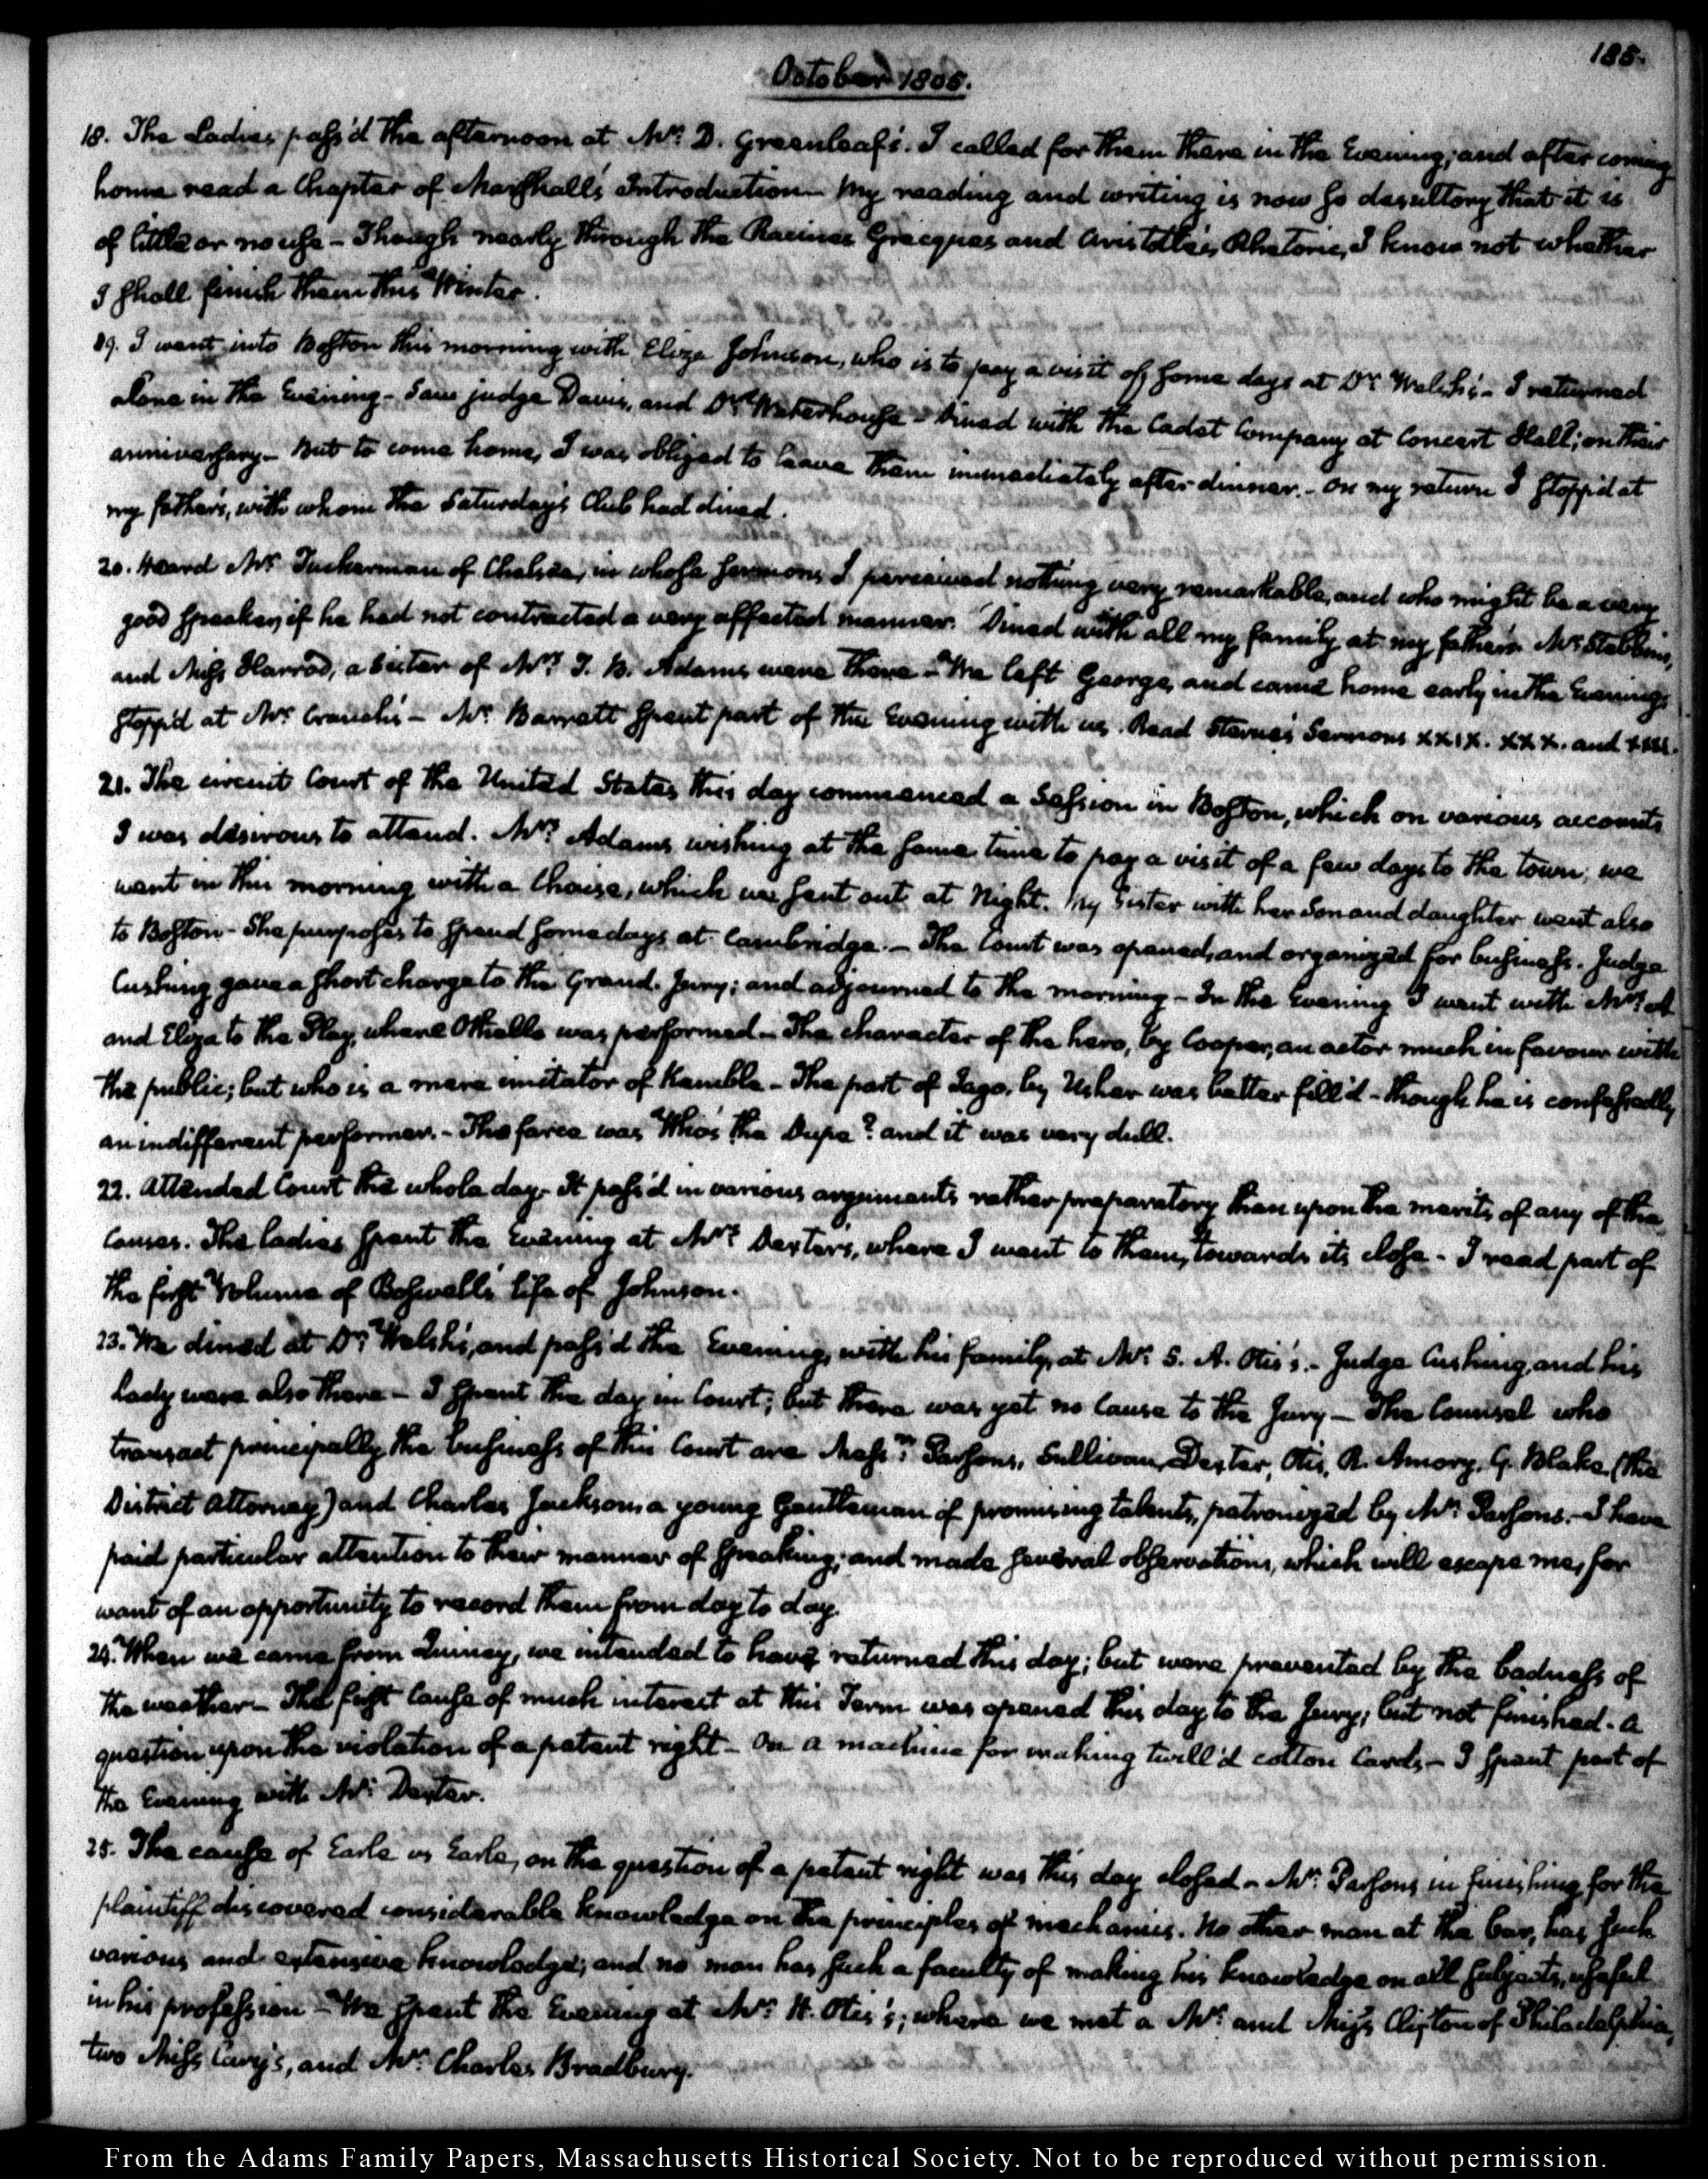 185.
October 1805.
18. The Ladies pass'd the afternoon at Mr. D. Greenleaf's. I called for them there in the Evening; and after coming
home read a Chapter of Marshall's Introduction — My reading and writing is now so desultory that it is
of little or no use — Though nearly through the Racines Grecques and Aristotle's Rhetoric, I know not whether
I shall finish them this Winter.
19. I went into Boston this morning with Eliza Johnson, who is to pay a visit of some days at Dr. Welsh's — I returned
alone in the Evening — Saw judge Davis, and Dr. Waterhouse — Dined with the Cadet Company at Concert Hall; on their
anniversary — But to come home, I was obliged to leave them immediately after dinner. — On my return I stopp'd at
my father's, with whom the Saturday's Club had dined.
20. Heard Mr. Tuckerman of Chelsea, in whose sermons I perceived nothing very remarkable, and who might be a very
good speaker, if he had not contracted a very affected manner. Dined with all my family at my father's. Mr. Stebbins,
and Miss Harrod, a Sister of Mrs. T. B. Adams were there — We left George, and came home early in the Evening;
stopp'd at Mr. Cranch's — Mr. Barrett spent part of the Evening with us. Read Sterne's Sermons XXIX. XXX. and XXXI.
21. The circuit Court of the United States this day commenced a Session in Boston, which on various accounts
I was desirous to attend. Mrs. Adams wishing at the same time to pay a visit of a few days to the town; we
went in this morning with a Chaise, which we sent out at Night. My Sister with her Son and daughter went also
to Boston — She purposes to spend some days at Cambridge. — The Court was opened, and organized for business. Judge
Cushing gave a short charge to the Grand-Jury; and adjourned to the morning — In the Evening I went with Mrs. A
and Eliza to the Play, where Othello was performed — The character of the hero, by Cooper, an actor much in favour with
the public; but who is a mere imitator of Kemble — The part of Iago, by Usher was better fill'd — though he is confessedly
an indifferent performer. — The farce was Who's the Dupe? and it was very dull.
22. Attended Court the whole day. It pass'd in various arguments rather preparatory than upon the merits of any of the
Causes. The ladies spent the Evening at Mrs. Dexter's, where I went to them, towards its close — I read part of
the first Volume of Boswell's life of Johnson.
23. We dined at Dr. Welsh's, and pass'd the Evening, with his family, at Mr. S. A. Otis's. — Judge Cushing, and his
Lady were also there — I spent the day in Court; but there was yet no Cause to the Jury — The Counsel who
transact principally the business of this Court are Messrs. Parsons, Sullivan, Dexter, Otis, R. Amory, G. Blake (the
District Attorney) and Charles Jackson, a young Gentleman of promising talents, patronized by Mr. Parsons. — I have
paid particular attention to their manner of speaking; and made several observations, which will escape me, for
want of an opportunity to record them from day to day.
24. When we came from Quincy, we intended to have returned this day; but were prevented by the badness of
the weather — The first Cause of much interest at this Term was opened this day to the Jury; but not finished. A
question upon the violation of a patent right — On a machine for making twill'd cotton Cards — I spent part of
the Evening with Mr. Dexter.
25. The cause of Earle vs Earle, on the question of a patent right was this day closed — Mr. Parsons in finishing for the
plaintiff discovered considerable knowledge on the principles of mechanics. No other man at the bar, has such
various and extensive knowledge; and no man has such a faculty of making his knowledge on all subjects, useful
in his profession — We spent the Evening at Mr. H. Otis's; where we met a Mr. and Miss Clifton of Philadelphia,
two Miss Cary's, and Mr. Charles Bradbury.
From the Adams Family Papers, Massachusetts Historical Society. Not to be reproduced without permission.